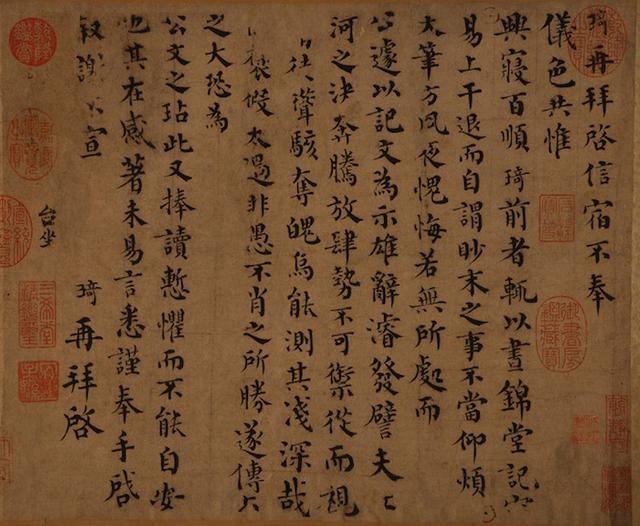 琦再拜啓信宿不奉
儀色共惟
興寢百順琦前者輒以晝錦堂記
易上干退而自謂眇末之事不當仰煩
大筆方夙夜愧悔若無所處而
公遽以記文為示雄辭濬發譬夫
河之決奔騰放肆勢不可禦從而視
徒聳駭奪魄烏能測其淺深哉
褒假太過非愚不肖之所勝遂傳
之大恐為
公文之玷此又捧讀慙懼而不能自安
也其在感著未易言悉謹奉手啓
敘謝不宣
琦再拜啓
台坐